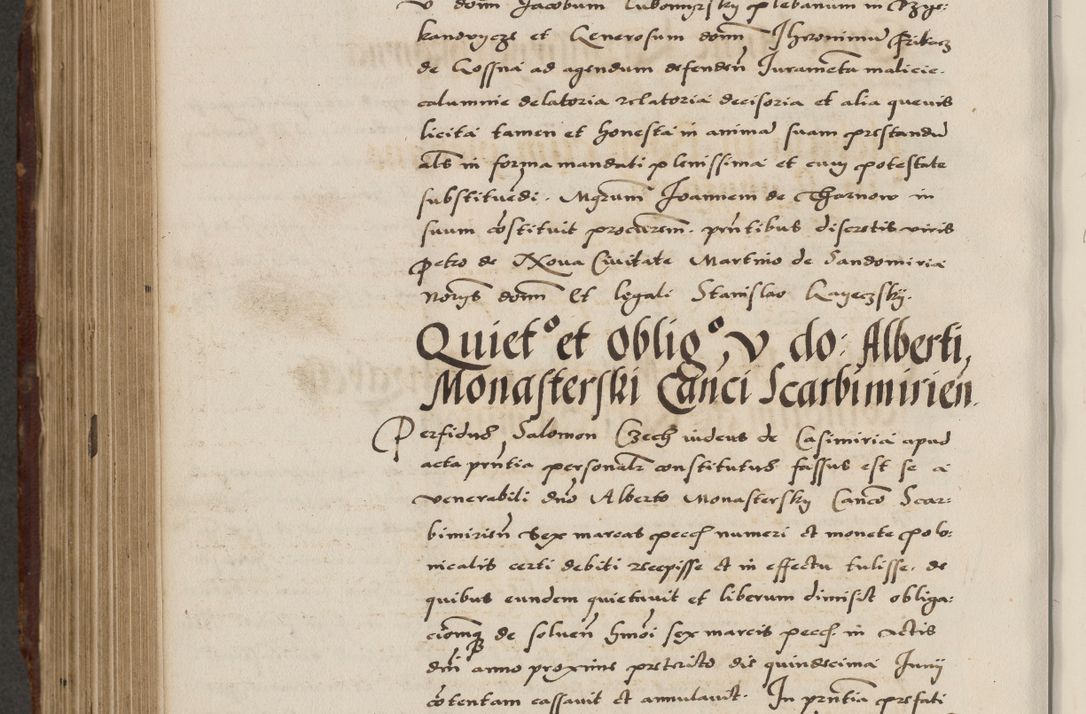 v domi Jacobum Lubomyrsky plebanum in
kandvycze et Generosum domi Jheronimu Fribacz
de Cossna ad agendum defenden Juramenta malicie
calumnie delatoria relatoria decisoria et alia quevis
licita tamen et honesta in anima suam prestandu
als in forma mandati plenissima et cum potestate
substituedi. Mgrum Joannem de Tharnow in
suum costituit procurem. pntibus discretis viris
Petro de Nova Civitate Martino de Sandomiria
Norys domi Et legali Stanislao
Quiet° et oblig°, v do: Alberti,
Monasterski Canci Scarbimirien
Perfidus Salomon Czech iudeus de Casimiria apud
acta pntia personalr constitutus fassus est se a
venerabili dno Alberto Monastersky Canco Scar:
bimirien Sex marcas pecch numeri et monete polo:
nicalis certi debiti recepisse et in effectu tulisse. de
quibus eundem quietavit et liberum dimisit obliga:
cionmq de solven hmoi sex marcis pecch. in actis
dni P anno proxime pretrito die quindecima Junij
cotentam cassavit et annulavit. In pntia prefati